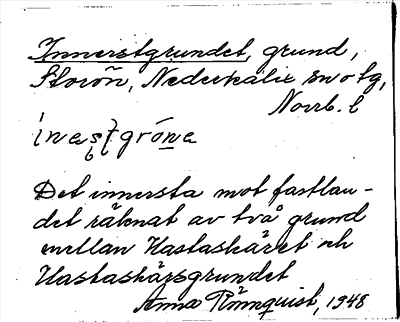 Innerstgrundet, grund,
Storön, Nederkalix sn o tg,
Norrb. l
ínesţgróne
Det innersta mot fastlan-
det räknat av två grund
mellan Hastaskäret och
Hastaskärsgrundet
Anna Rönnquist, 1948